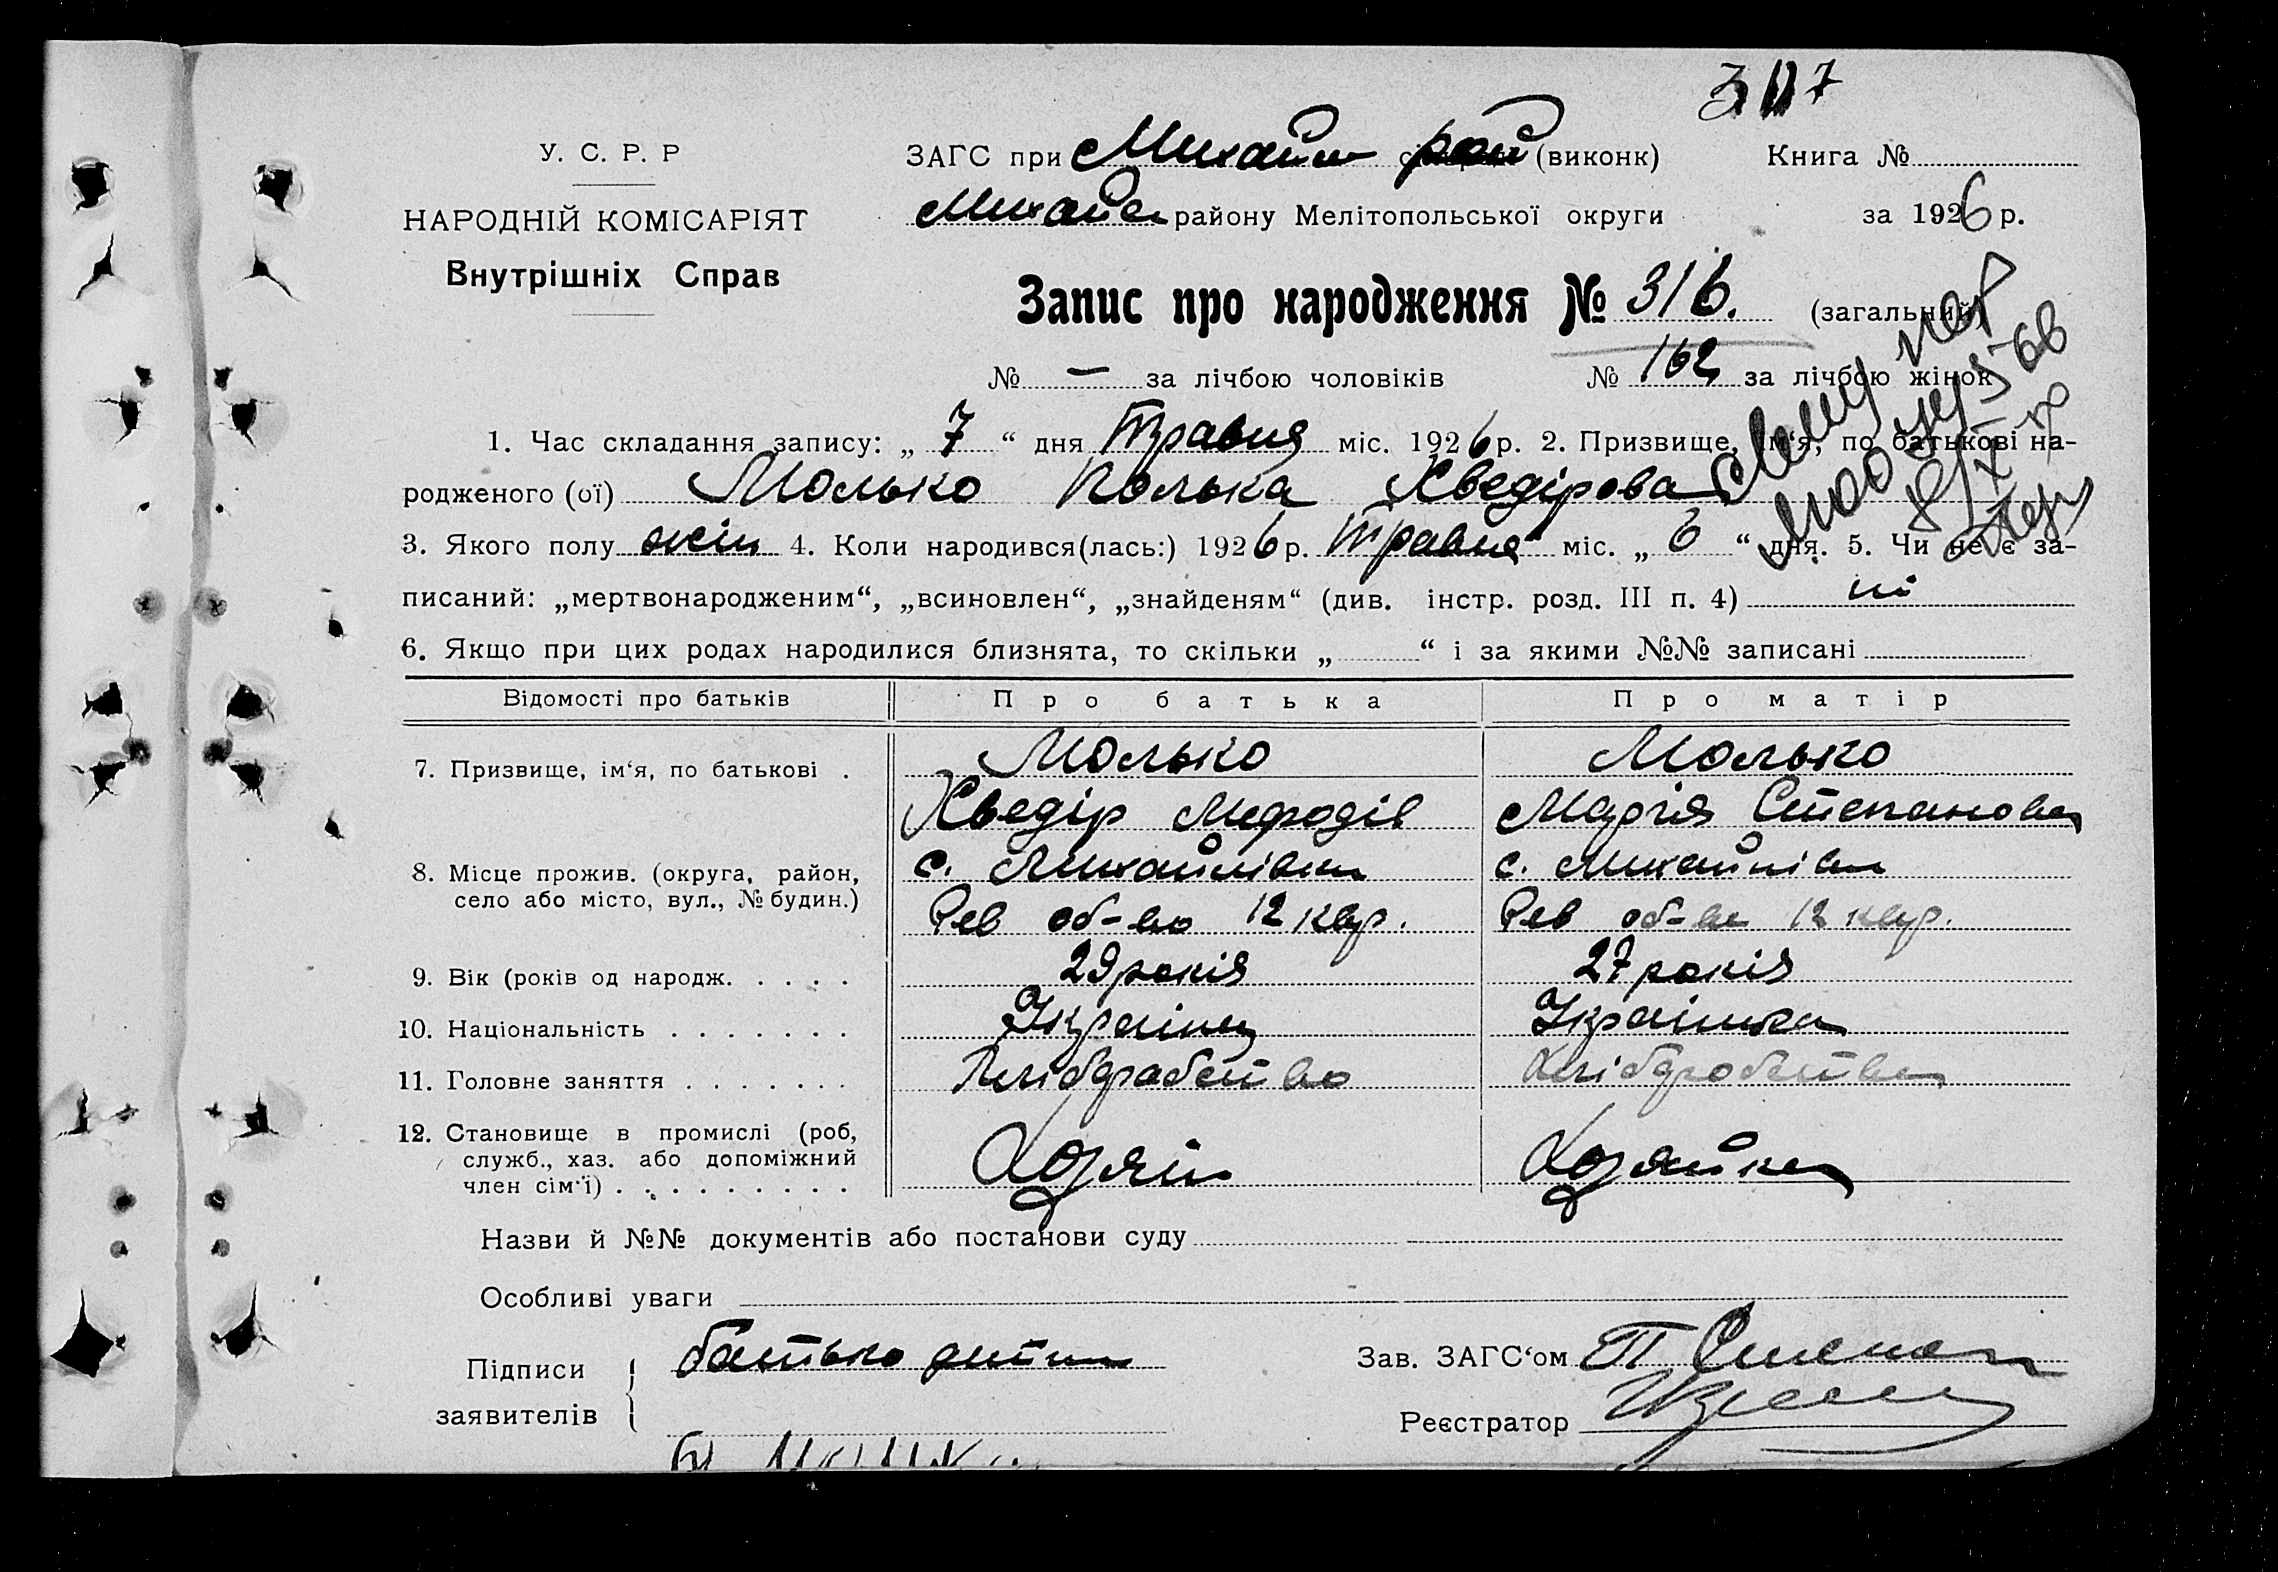 317
У. С. Р. Р
ЗАГС при Михайл рай (виконк) Книга №
НАРОДНІЙ КОМІСАРІЯТ
Михайл району Мелітопольської округи за 1926 р.
Внутрішніх Справ
Запис про народження № 316. (загальний)
№ — за лічбою чоловіків № 162 за лічбою жінок
1. Час складання запису: „ 7 “ дня Травня міс. 1926 р. 2. Призвище, ім‘я, по батькові на-
родженого (ої) Молько Полька Хведірова
3. Якого полу жін 4. Коли народився(лась:) 1926 р. Травня міс. „ 6 “ дня. 5. Чи не є за-
писаний: „мертвонародженим“, „всиновлен“, „знайденям“ (див. інстр. розд. III п. 4) ні
6. Якщо при цих родах народилися близнята, то скільки „ “ і за якими №№ записані
Відомості про батьків Про батька Про матір
7. Призвище, ім‘я, по батькові . Молько Молько
Хведір Мефодів Марія Степанова
8. Місце прожив. (округа, район, с. Михайлівка с. Михайлівка
село або місто, вул., № будин.) Рев об-во 12 квр. Рев об-во 12 квр.
9. Вік (років од народж. . . . . 29 років 27 років
10. Національність . . . . . . . Українец Українка
11. Головне заняття . . . . . . . Хлібробство Хлібробство
12. Становище в промислі (роб,
служб., хаз. або допоміжний Хозяїн Хозяйка
член сім‘ї) . . . . . . . . .
Назви й №№ документів або постанови суду
Особливі уваги
Підписи батько дитини Зав. ЗАГС‘ом П
заявителів Реєстратор